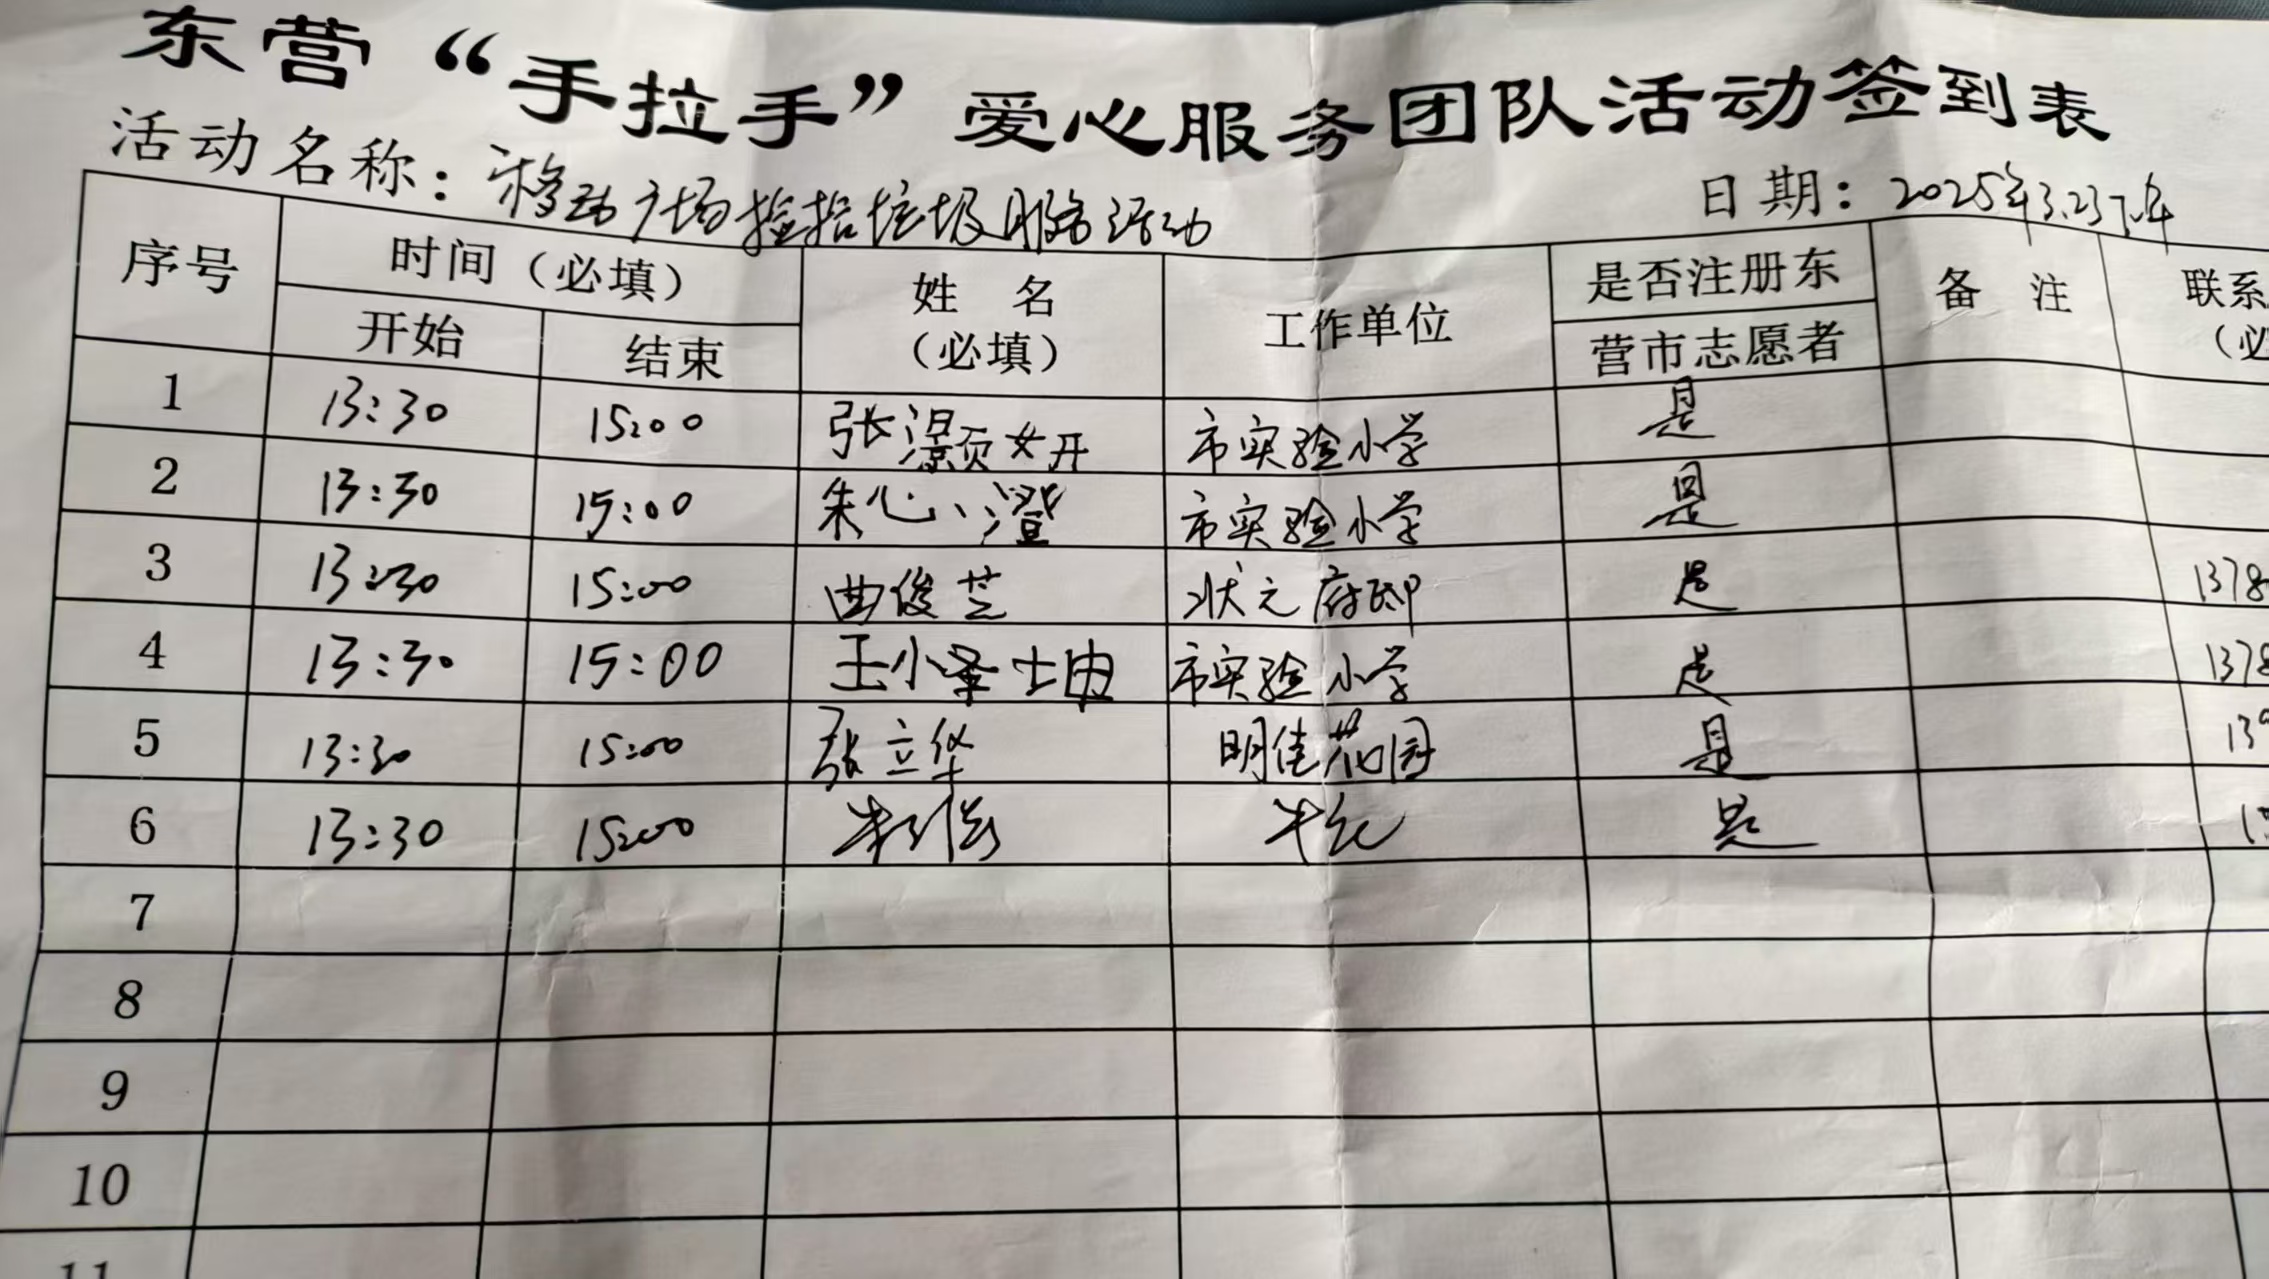 东营“手拉手”爱心服务团队活动签到表
活动名称：移动广场捡拾垃圾服务活动 日期：2025年3.23下午
序号 时间（必填） 姓 名（必填） 工作单位 是否注册东营市志愿者 备 注 联系
开始 结束 （必
1 13:30 15:00 张灏妍 市实验小学 是
2 13:30 15:00 朱心澄 市实验小学 是
3 13:30 15:00 曲俊芝 状元府邸 是 1378
4 13:30 15:00 王小 市实验小学 是 1378
5 13:30 15:00 张立华 明佳花园 是 139
6 13:30 15:00 是 1
7
8
9
10
11